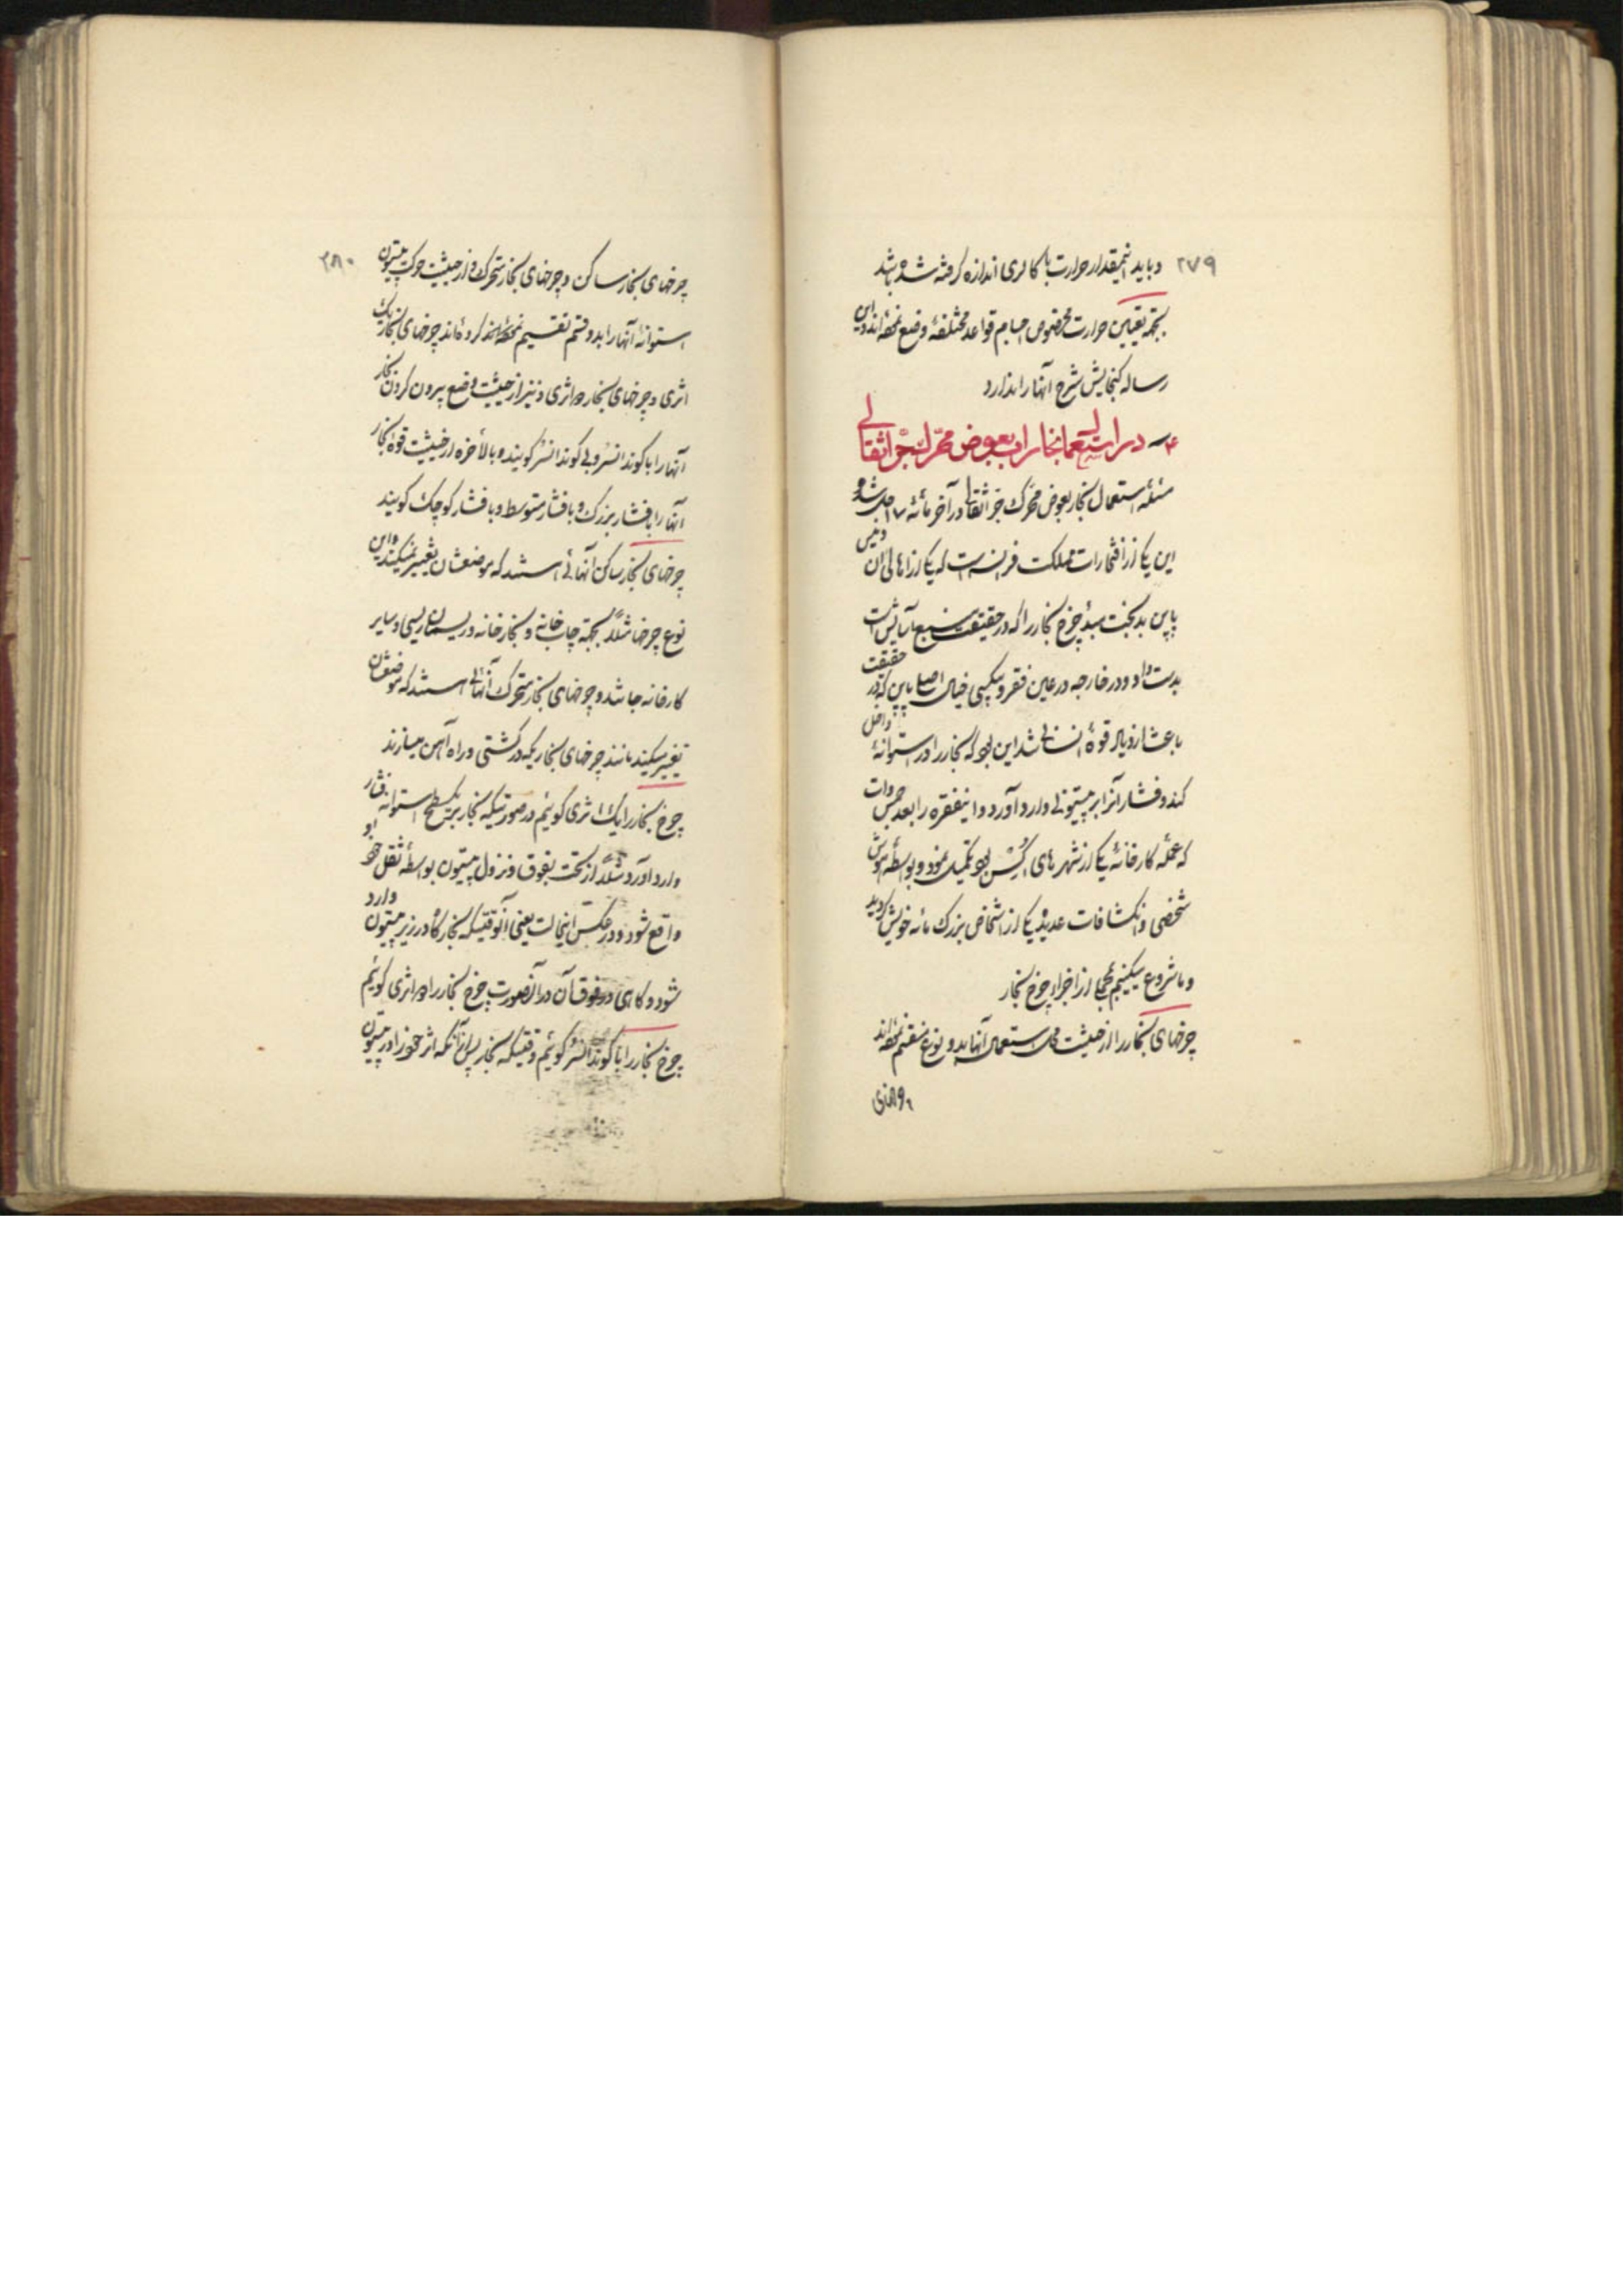 ۲۷۹
و باید اینمقدار حرارت با کالری اندازه گرفته شده باشد
بجهة تعیین حرارت مخصوص اجسام قواعد مختلفهٔ وضع نموده‌اند و این
رساله گنجایش شرح آنها را ندارد
۴ـ در استعمال بخار آب بعوض محرک جرّ اثقالی
مسئله استعمال بخار بعوض محرک جرّ اثقالی در آخر مائهٔ ۱۷ حل شد و
این یکی از افتخارات مملکت فرانسه است که یکی از اهالی آن دنیس
پاپن بدبخت مبدأ چرخ بخار را که در حقیقت منبع آسایش است
بدست داد و در خارجه در عین فقر و بیکسی خیال اصلی پاپن که در حقیقت
باعث ازدیاد قوهٔ انسانی شد این بود که بخار را در استوانهٔ داخل
کند و فشار آنرا بر پیستونی وارد آورد و اینفقره را بعد
که عمله کارخانهٔ یکی از شهرهای بود تکمیل نمود و بواسطهٔ هوش
شخصی و انکشافات عدیدهٔ یکی از اشخاص بزرگ مائه خویش گردید
و ما شروع میکنیم مجملی از اجزاء چرخ بخار
چرخهای بخار را از حیثیت محل استعمال آنها بدو نوع منقسم نموده‌اند
۲۸۰
چرخهای بخار ساکن و چرخهای بخار متحرک و از حیثیت حرکت پیستون
استوانهٔ آنها را بدو قسم تقسیم کرده‌اند چرخهای بخار یک
اثری و چرخهای بخار دو اثری و نیز از حیثیت وضع بیرون کردن بخار
آنها را با کوندانسر و بی کوندانسر گویند و بالاخره از حیثیت قوهٔ بخار
آنها را با فشار بزرگ و با فشار متوسط و با فشار کوچک گویند
چرخهای بخار ساکن آنهائی هستند که موضعشان تغییر نمیکند و این
نوع چرخها مثلاً بجهة چاپ خانه و بخارخانه و ریسمان ریسی و سایر
کارخانه جات شد و چرخهای بخار متحرک آنهائی هستند که موضعشان
تغییر میکند مانند چرخهای بخاریکه در کشتی و راه آهن میسازند
چرخ بخار را یک اثری گوئیم در صورتیکه بخار بر یکسطح استوانه فشار
وارد آورد مثلاً از تحت بفوق و نزول پیستون بواسطهٔ ثقل خود او
واقع شود و در عکس اینحالت یعنی آنوقتیکه بخار گاه در زیر پیستون وارد
شود و گاهی در فوق آن در آنصورت چرخ بخار را دو اثری گوئیم
چرخ بخار را با کوندانسر گوئیم وقتیکه بخار پس از آنکه اثر خود را در پیستون